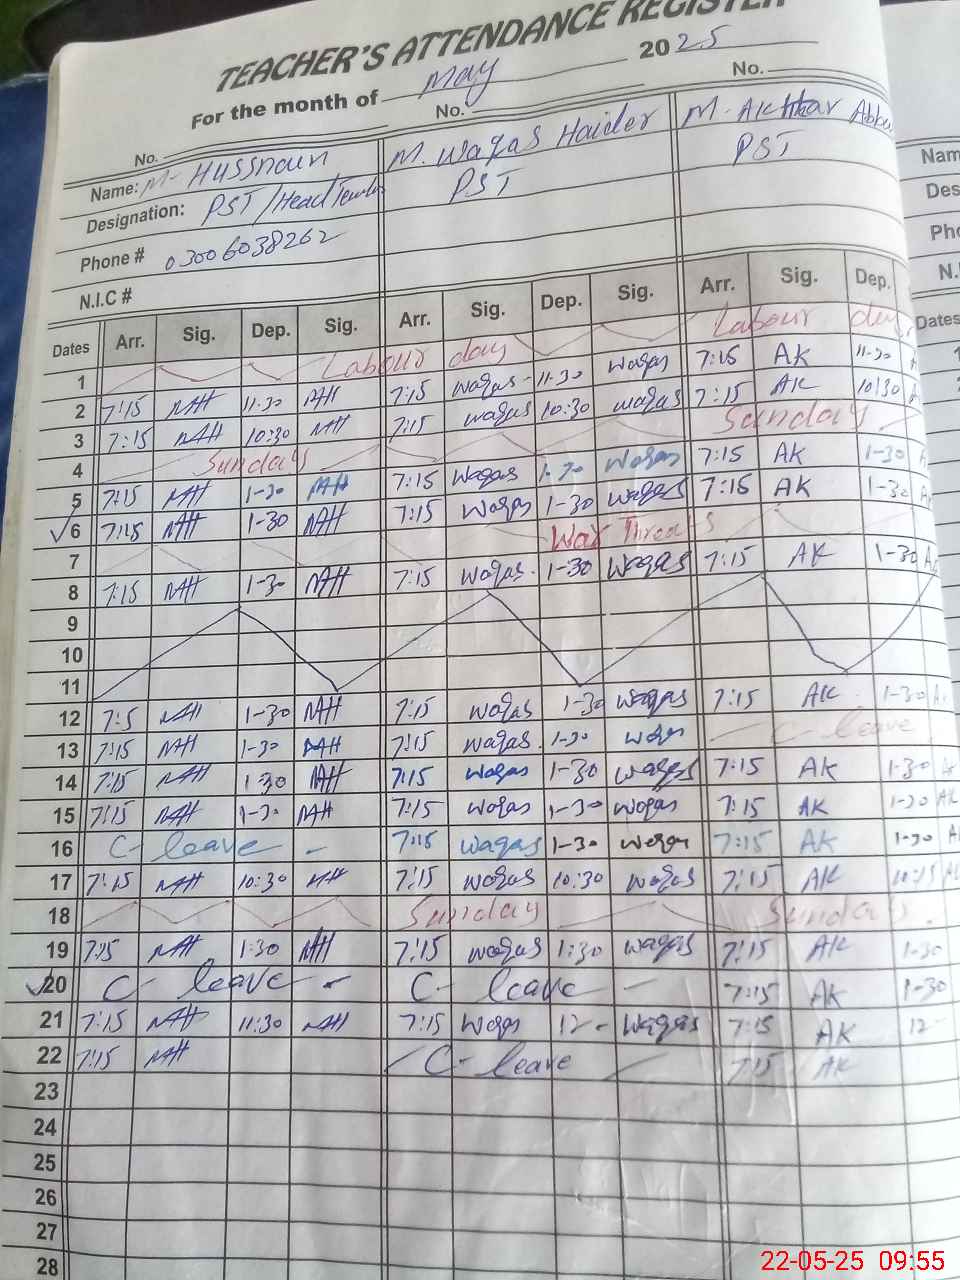 TEACHER'S ATTENDANCE REGISTER
For the month of May 2025
No. No. No.
Name: M- Hussnain M. Waqas Haider M. Akhtar Abba
Designation: PST/Head Teacher PST PST
Phone # 03006038262
N.I.C #
Dates Arr. Sig. Dep. Sig. Arr. Sig. Dep. Sig. Arr. Sig. Dep.
1 Labour day Labour day
2 7:15 MH 11:30 MH 7:15 waqas 11-30 waqas 7:15 AK 11-30
3 7:15 MH 10:30 MH 7:15 waqas 10:30 waqas 7:15 AK 10:30
4 Sunday Sunday
5 7:15 MH 1-30 MH 7:15 waqas 1-30 waqas 7:15 AK 1-30
6 7:15 MH 1-30 MH 7:15 waqas 1-30 waqas 7:15 AK 1-30
7 War Threats
8 7:15 MH 1-30 MH 7:15 waqas 1-30 waqas 7:15 AK 1-30
9
10
11
12 7:5 MH 1-30 MH 7:15 waqas 1-30 waqas 7:15 AK 1-30
13 7:15 MH 1-30 MH 7:15 waqas 1-30 waqas C-leave
14 7:15 MH 1:30 MH 7:15 waqas 1-30 waqas 7:15 AK 1-30
15 7:15 MH 1-30 MH 7:15 waqas 1-30 waqas 7:15 AK 1-30 AK
16 C- leave - 7:15 waqas 1-30 waqas 7:15 AK 1-30
17 7:15 MH 10:30 MH 7:15 waqas 10:30 waqas 7:15 AK
18 Sunday Sunday
19 7:15 MH 1:30 MH 7:15 waqas 1:30 waqas 7:15 AK 1-30
20 C- leave - C- leave - 7:15 AK 1-30
21 7:15 MH 11:30 MH 7:15 waqas 12- waqas 7:15 AK 12-
22 7:15 MH C- leave 7:15 AK
23
24
25
26
27
28
Nam
Des
Pho
N.I
Dates
1
22-05-25 09:55